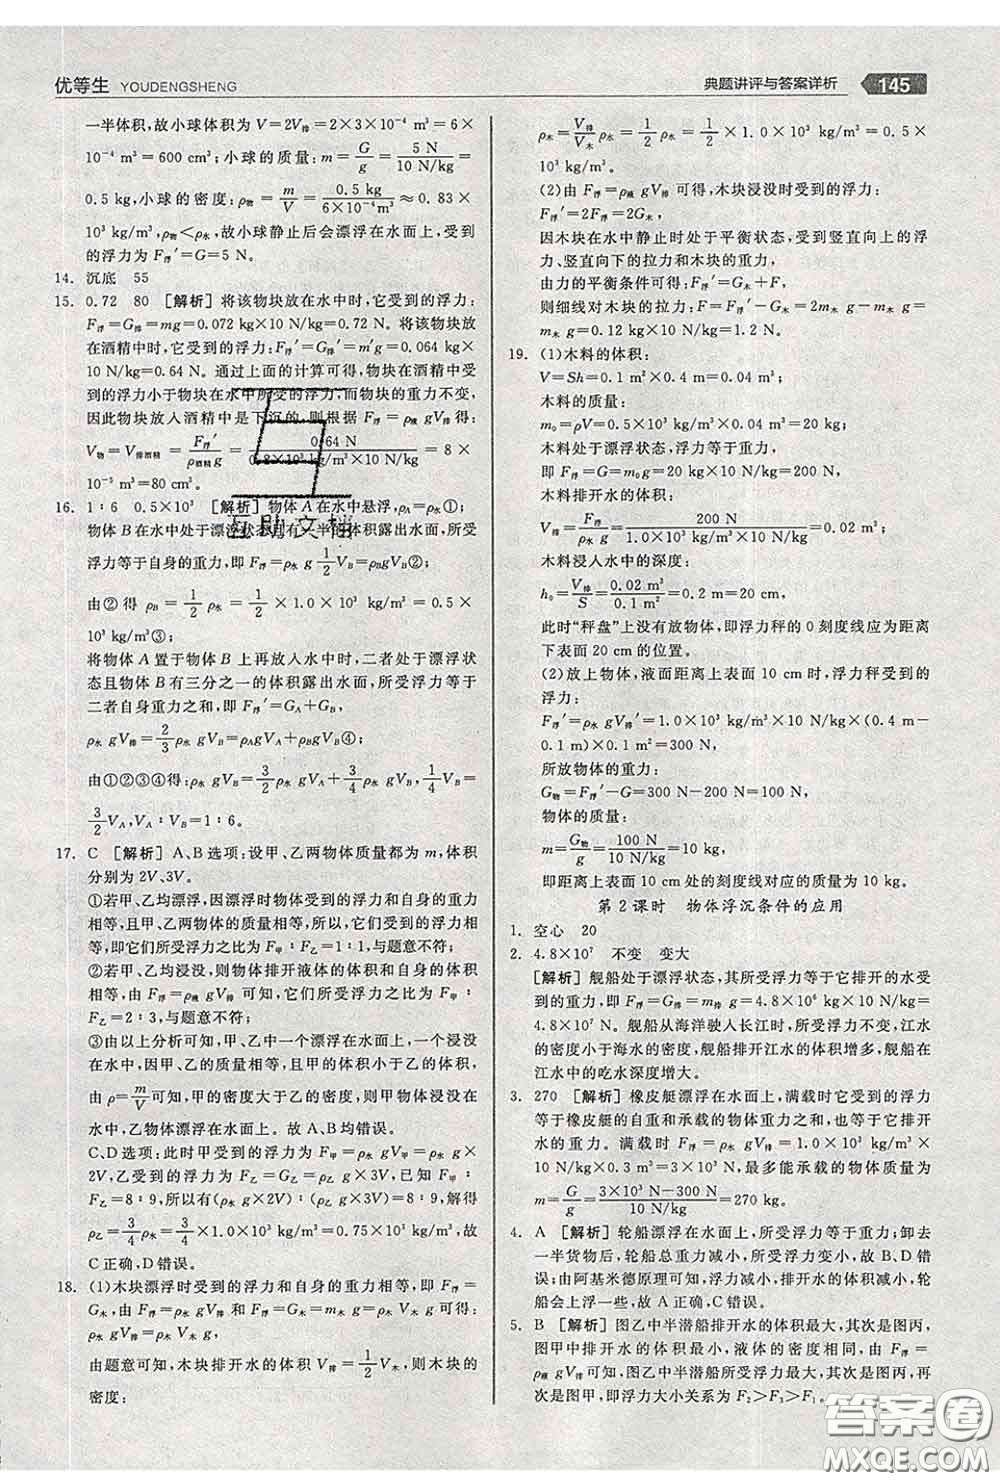 优等生 YOUDENGSHENG
典题讲评与答案详析 145
一半体积,故小球体积为 V=2V排=2×3×10⁻⁴ m³=6×
10⁻⁴ m³=600 cm³;小球的质量:m=G/g=5 N/10 N/kg=
0.5 kg,小球的密度:ρ物=m/V=0.5 kg/6×10⁻⁴m³≈0.83×
10³ kg/m³,ρ物<ρ水,故小球静止后会漂浮在水面上,受到
的浮力为 F浮′=G=5 N。
14. 沉底 55
15. 0.72 80 [解析] 将该物块放在水中时,它受到的浮力:
F浮=G排=mg=0.072 kg×10 N/kg=0.72 N。将该物块
放在酒精中时,它受到的浮力:F浮′=G排′=m′g=0.064 kg×
10 N/kg=0.64 N。通过上面的计算可得,物块在酒精中受到
的浮力小于物块在水中所受的浮力,而物块的重力不变,
因此物块放入酒精中是下沉的,则根据 F浮=ρ液 gV排得:
V物=V排酒精=F浮′/ρ酒精g=0.64 N/0.8×10³ kg/m³×10 N/kg=8×
10⁻⁵ m³=80 cm³。
16. 1∶6 0.5×10³ [解析] 物体A在水中悬浮,ρA=ρ水①;
物体B在水中处于漂浮状态且有一半的体积露出水面,所受
浮力等于自身的重力,即 F浮=ρ水 g 1/2 VB=ρB gVB②;
由②得 ρB=1/2 ρ水=1/2×1.0×10³ kg/m³=0.5×
10³ kg/m³③;
将物体A置于物体B上再放入水中时,二者处于漂浮状
态且物体B有三分之一的体积露出水面,所受浮力等于
二者自身重力之和,即 F浮′=GA+GB,
ρ水 gV排=2/3 ρ水 gVB=ρAgVA+ρBgVB④;
由①②③④得:ρ水 gVB=3/2 ρ水 gVA+3/4 ρ水 gVB,1/4 VB=
3/2 VA,VA∶VB=1∶6。
17. C [解析] A、B选项:设甲、乙两物体质量都为 m,体积
分别为2V、3V。
①若甲、乙均漂浮,因漂浮时物体所受浮力和自身的重力
相等,且甲、乙两物体的质量相等,所以,它们所受浮力相
等,即它们所受浮力之比为 F甲∶F乙=1∶1,与题意不符;
②若甲、乙均浸没,物体排开液体的体积和自身的体积相
等,由 F浮=ρ液 gV排 可知,它们所受浮力之比为 F甲∶
F乙=2∶3,与题意不符;
③由以上分析可知,甲、乙中一个漂浮在水面上,一个浸没
在水中,因甲、乙的质量相等,且甲的体积小于乙的体积,
由 ρ=m/V可知,甲的密度大于乙的密度,则甲物体浸没在
水中,乙物体漂浮在水面上。故A、B均错误。
C、D选项:此时甲受到的浮力为 F甲=ρ水 gV排=ρ水 g×
2V,乙受到的浮力为 F乙=G乙=ρ乙 g×3V,已知 F甲∶
F乙=8∶9,所以有(ρ水 g×2V)∶(ρ乙 g×3V)=8∶9,解得
ρ乙=3/4 ρ水=3/4×1.0×10³ kg/m³=0.75×10³ kg/m³,故
C正确,D错误。
18. (1)木块漂浮时受到的浮力和自身的重力相等,即 F浮=
G木,由 F浮=ρ水 gV排和 F浮=G木=m木 g=ρ木 V木 g 可得:
ρ水 gV排=ρ木 V木 g,
由题意可知,木块排开水的体积 V排=1/2 V木,则木块的
密度:
ρ木=V排/V木 ρ水=1/2 ρ水=1/2×1.0×10³ kg/m³=0.5×
10³ kg/m³。
(2)由 F浮=ρ液 gV排可得,木块浸没时受到的浮力:
F浮′=2F浮=2G木,
因木块在水中静止时处于平衡状态,受到竖直向上的浮
力、竖直向下的拉力和木块的重力,
由力的平衡条件可得:F浮′=G木+F,
则细线对木块的拉力:F=F浮′-G木=2m木 g-m木 g=
m木 g=0.12 kg×10 N/kg=1.2 N。
19. (1)木料的体积:
V=Sh=0.1 m²×0.4 m=0.04 m³,
木料的质量:
m₀=ρV=0.5×10³ kg/m³×0.04 m³=20 kg;
木料处于漂浮状态,浮力等于重力,
即 F浮=G=m₀g=20 kg×10 N/kg=200 N,
木料排开水的体积:
V排=F浮/ρ水 g=200 N/1.0×10³ kg/m³×10 N/kg=0.02 m³;
木料浸入水中的深度:
h₀=V排/S=0.02 m³/0.1 m²=0.2 m=20 cm,
此时“秤盘”上没有放物体,即浮力秤的0刻度线应为距离
下表面20 cm的位置。
(2)放上物体,液面距离上表面10 cm时,浮力秤受到的
浮力:
F浮′=ρ水 gV排′=1.0×10³ kg/m³×10 N/kg×(0.4 m-
0.1 m)×0.1 m²=300 N,
所放物体的重力:
G物=F浮′-G=300 N-200 N=100 N,
物体的质量:
m=G物/g=100 N/10 N/kg=10 kg,
即距离上表面10 cm处的刻度线对应的质量为10 kg。
第2课时 物体浮沉条件的应用
1. 空心 20
2. 4.8×10⁷ 不变 变大
[解析] 舰船处于漂浮状态,其所受浮力等于它排开的水受
到的重力,F浮=G排=m排 g=4.8×10⁶ kg×10 N/kg=
4.8×10⁷ N。舰船从海洋驶入长江时,所受浮力不变,江水
的密度小于海水的密度,舰船排开江水的体积增多,舰船在
江水中的吃水深度增大。
3. 270 [解析] 橡皮艇漂浮在水面上,所以它受到的浮力
等于橡皮艇的自重和承载的物体重力之和,也等于它排开
水的重力。满载时 F浮=ρ水 gV排=1.0×10³ kg/m³×
10 N/kg×0.3 m³=3×10³ N,最多能承载的物体质量为
m=G/g=3×10³ N-300 N/10 N/kg=270 kg。
4. A [解析] 轮船漂浮在水面上,所受浮力等于重力;卸去
一半货物后,轮船总重力减小,所受浮力变小,故B、D错
误;由阿基米德原理可知,浮力减小,排开水的体积减小,轮
船会上浮一些,故A正确,C错误。
5. B [解析] 图乙中半潜船排开水的体积最大,其次是图丙,
图甲中排开水的体积最小,液体密度相同,由 F浮=
ρ液 gV排可知,图乙中半潜船所受浮力最大,其次是图丙,再
次是图甲,即浮力大小关系为 F₂>F₃>F₁。
互助文档
答案圈
MXQE.COM